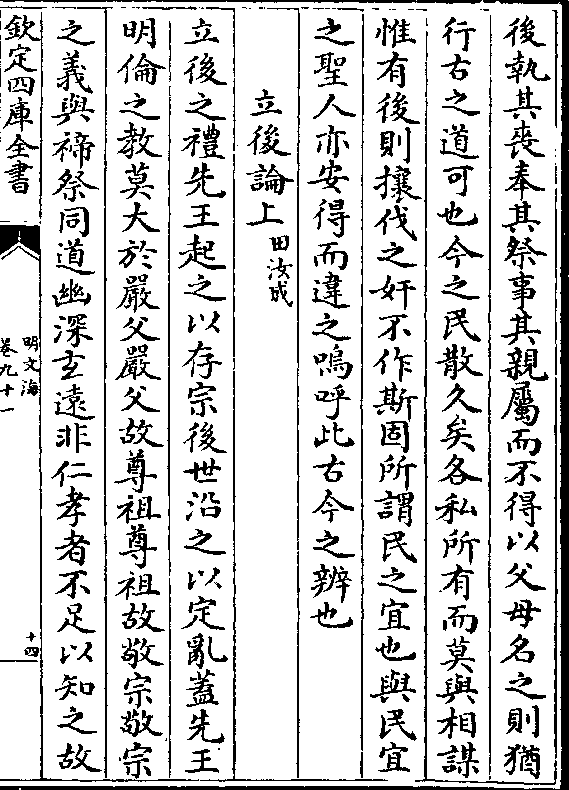 後執其喪奉其祭事其親屬而不得以父母名之則猶
行古之道可也今之民散久矣各私所有而莫與相謀
惟有後則攘伐之奸不作斯固所謂民之宜也與民宜
之聖人亦安得而違之嗚呼此古今之辨也
立後論上 田汝成
立後之禮先王起之以存宗後世沿之以定亂蓋先王
明倫之教莫大於嚴父嚴父故尊祖尊祖故敬宗敬宗
之義與禘祭同道幽深玄遠非仁孝者不足以知之故
欽定四庫全書
明文海
卷九十一
十四